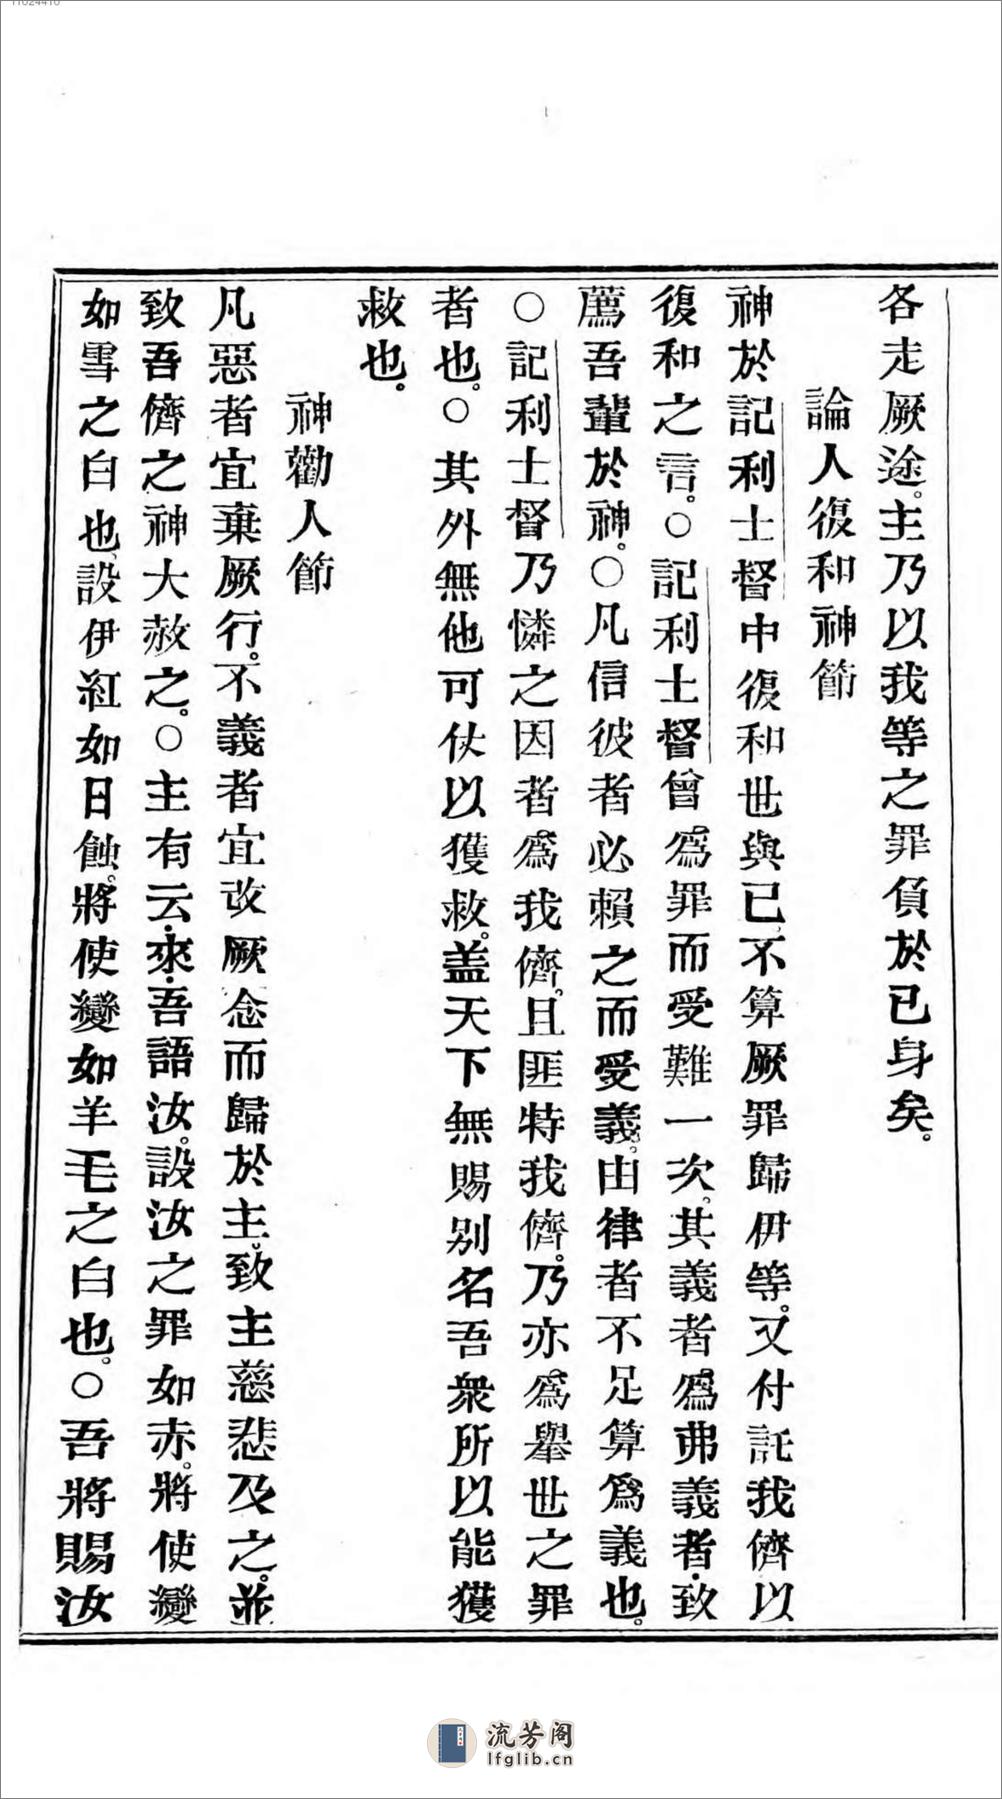 各走厥途。主乃以我等之罪負於已身矣。
論人復和神節
神於記利士督中復和世與已、不算厥罪歸伊等。又付託我儕以
復和之言。○記利士督曾為罪而受難一次。其義者為弗義者、致
薦吾輩於神。○凡信彼者必賴之而受義。由律者不足算為義也。
○記利士督乃憐之因者為我儕。且匪特我儕。乃亦為舉世之罪
者也。○其外無他可仗以獲救。盖天下無賜别名吾衆所以能獲
救也。
神勸人節
凡惡者宜棄厥行。不義者宜改厥念而歸於主、致主慈悲及之。並
致吾儕之神大赦之。○主有云、來、吾語汝。設汝之罪如赤。將使變
如雪之白也、設伊紅如日蝕。將使變如羊毛之白也。○吾將賜汝
流芳阁
lfglib.cn